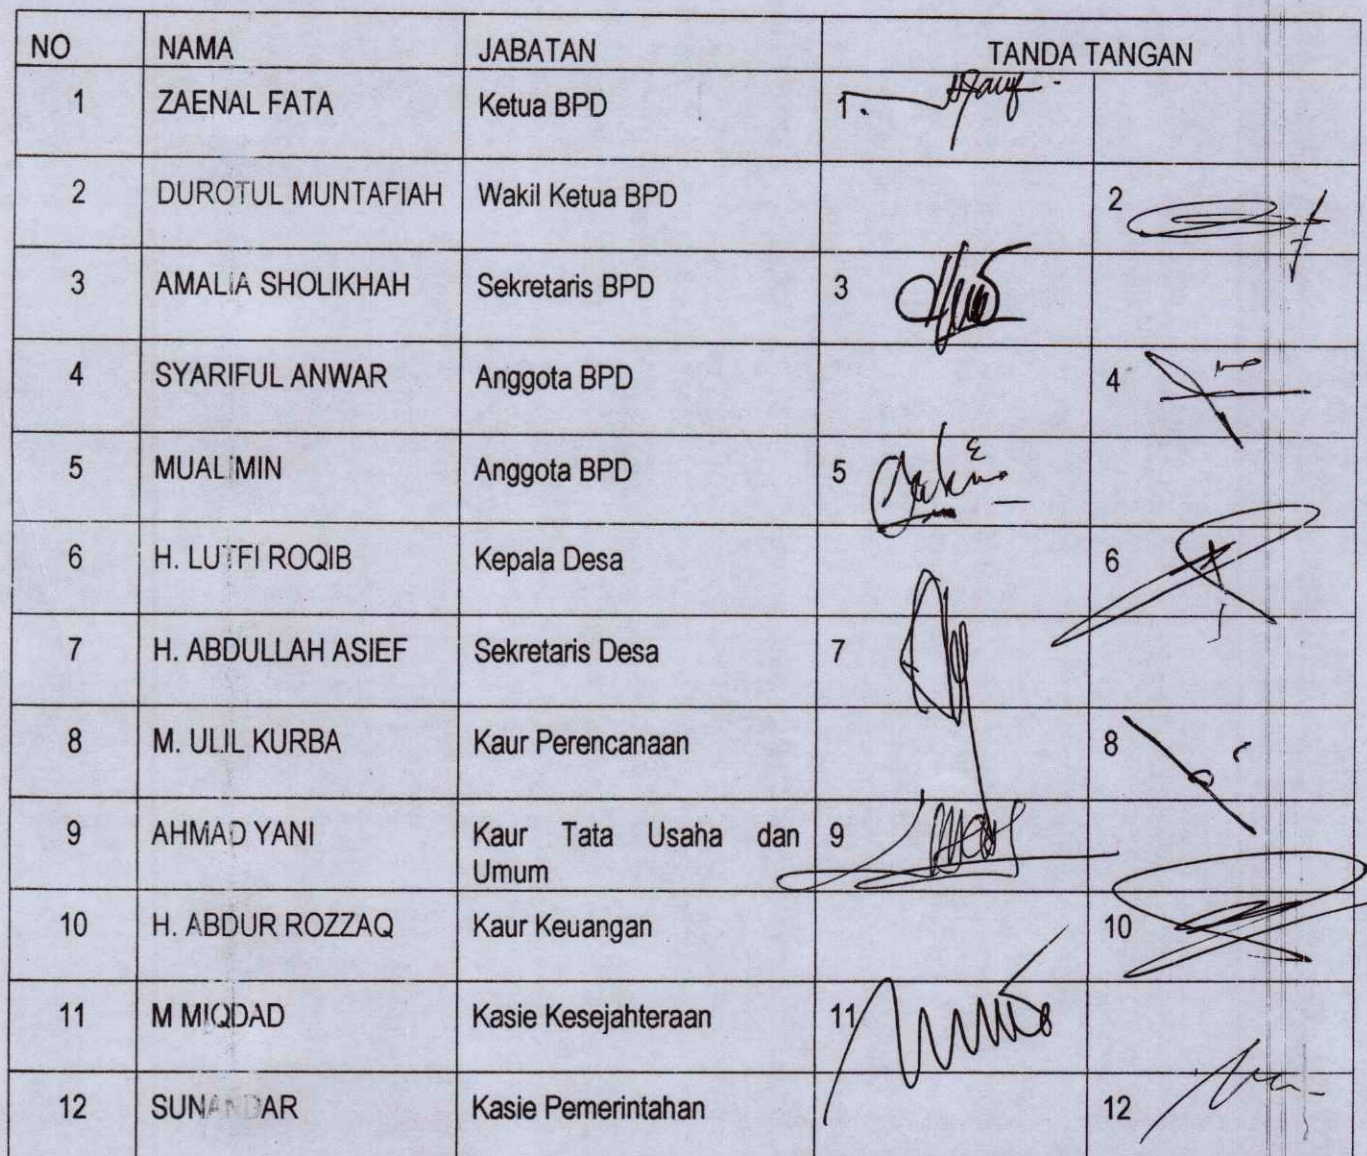 NO NAMA JABATAN TANDA TANGAN
1 ZAENAL FATA Ketua BPD 1.
2 DUROTUL MUNTAFIAH Wakil Ketua BPD 2
3 AMALIA SHOLIKHAH Sekretaris BPD 3
4 SYARIFUL ANWAR Anggota BPD 4
5 MUALIMIN Anggota BPD 5
6 H. LUTFI ROQIB Kepala Desa 6
7 H. ABDULLAH ASIEF Sekretaris Desa 7
8 M. ULIL KURBA Kaur Perencanaan 8
9 AHMAD YANI Kaur Tata Usaha dan 9
Umum
10 H. ABDUR ROZZAQ Kaur Keuangan 10
11 M MIQDAD Kasie Kesejahteraan 11
12 SUNANDAR Kasie Pemerintahan 12